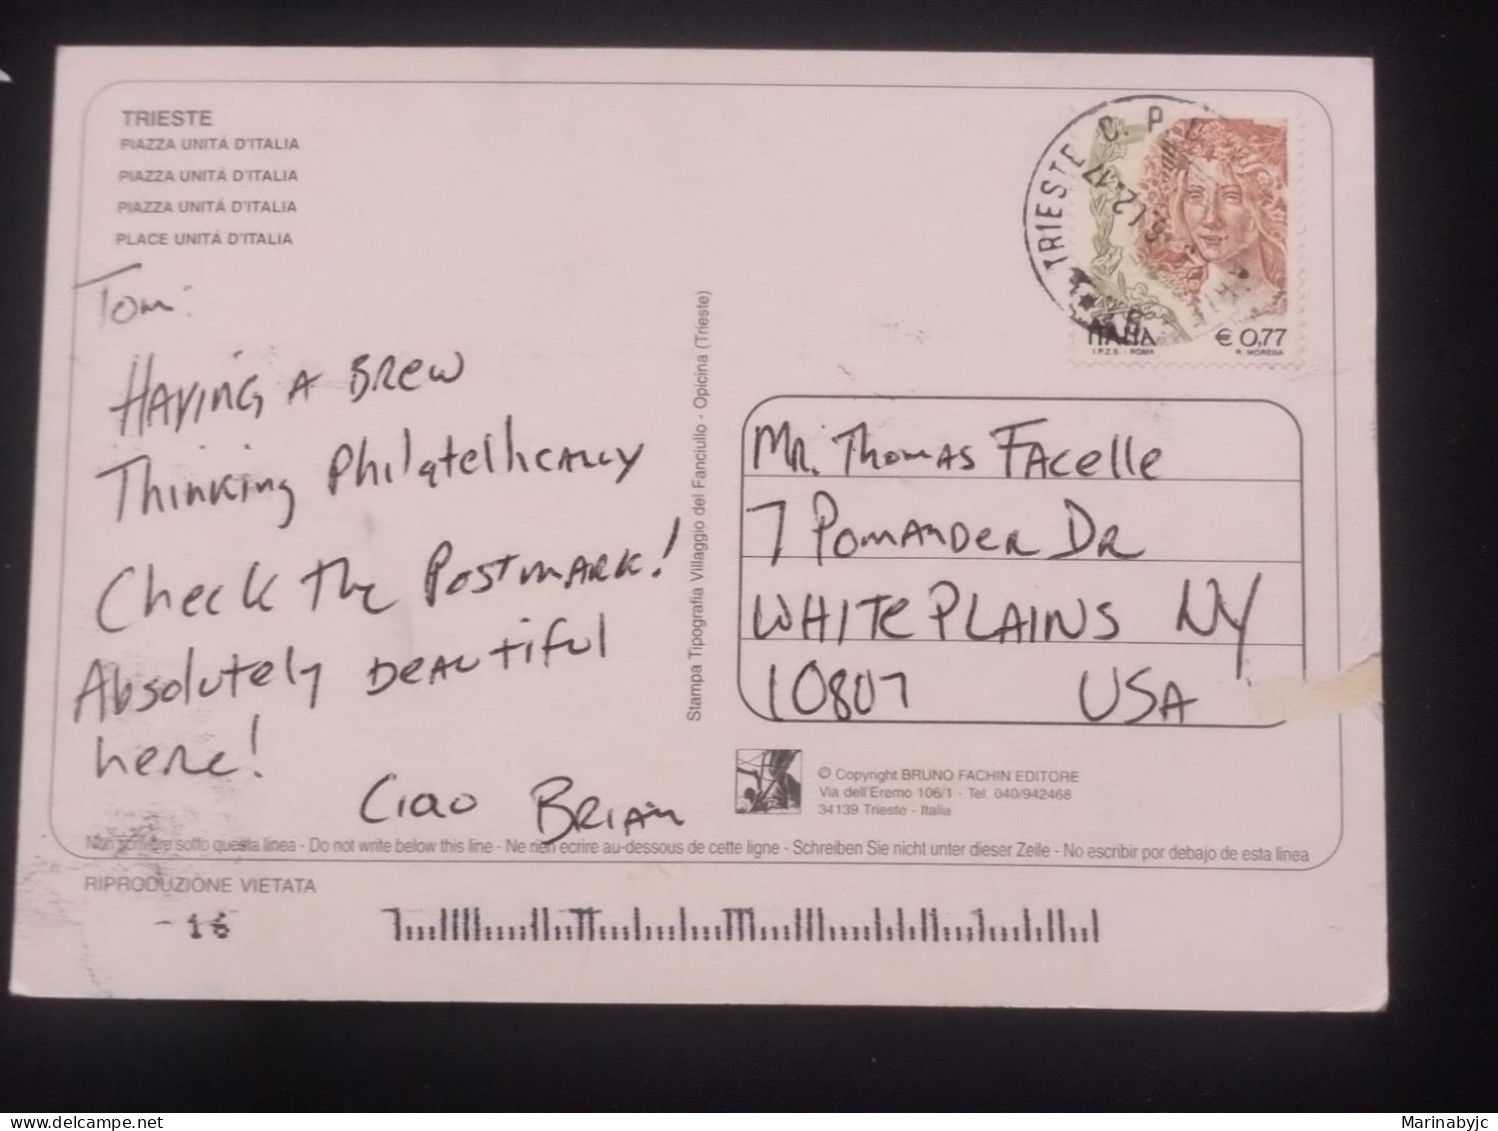 TRIESTE
PIAZZA UNITÁ D'ITALIA
PIAZZA UNITÁ D'ITALIA
PIAZZA UNITÁ D'ITALIA
PLACE UNITÁ D'ITALIA
Tom:
HAVING A BREW
THINKING PhilatelhcALLY
Check The POSTMARK!
Absolutely BEAUTIFUL
here!
Ciao BRIAN
Stampa Tipografia Villaggio del Fanciullo - Opicina (Trieste)
TRIESTE C.P.
ITALIA € 0,77
I.P.Z.S. - ROMA R. MORENA
MR. THOMAS FACELLE
7 POMANDER DR
WHITE PLAINS NY
10807 USA
© Copyright BRUNO FACHIN EDITORE
Via dell'Eremo 106/1 - Tel. 040/942468
34139 Trieste - Italia
Non scrivere sotto questa linea - Do not write below this line - Ne rien ecrire au-dessous de cette ligne - Schreiben Sie nicht unter dieser Zeile - No escribir por debajo de esta linea
RIPRODUZIONE VIETATA
- 16
Marinabyjc